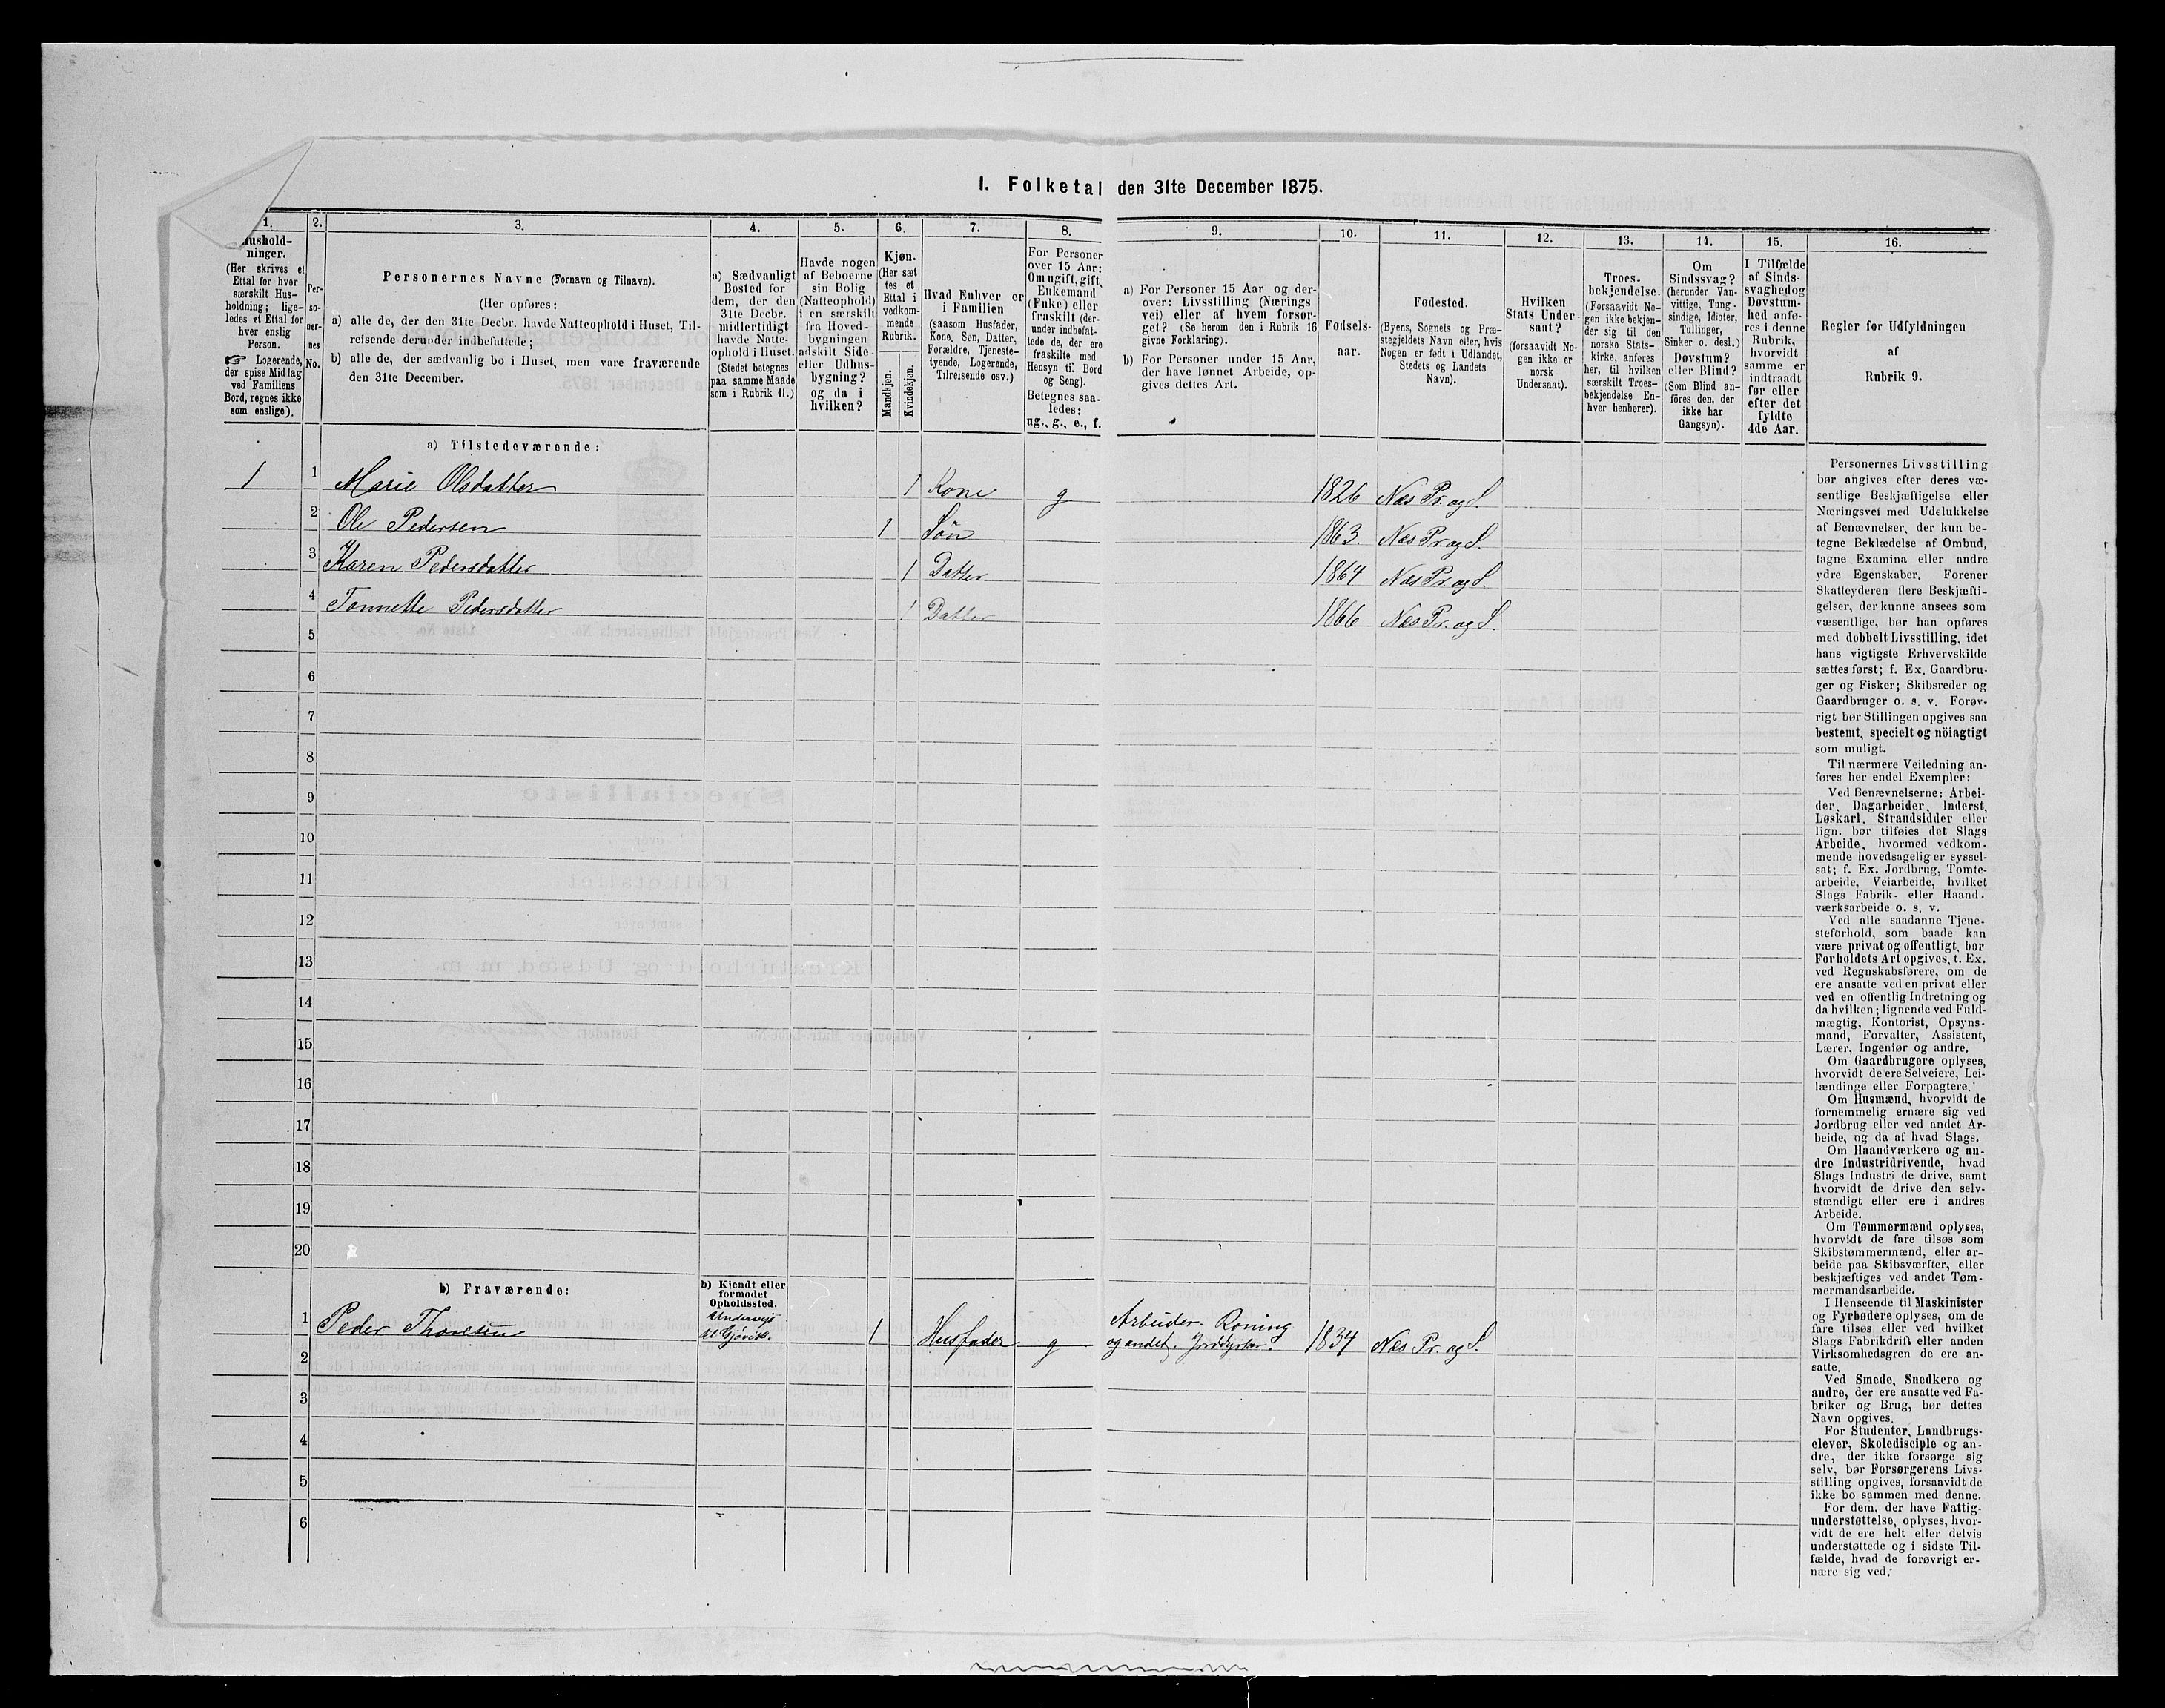 I. Folketal den 31te December 1875.
1.
2.
3.
4.
5.
6.
7.
8.
9.
10.
11.
12.
13.
14.
15.
16.
Hushold-
ninger.
(Her skrives et
Ettal for hver
særskilt Hus-
holdning; lige-
ledes et Ettal for
hver enslig
Person.
☞ Logerende,
der spise Middag
ved Familiens
Bord, regnes ikke
som enslige).
Per-
so-
ner-
nes
No.
Personernes Navne (Fornavn og Tilnavn).
(Her opføres:
a) alle de, der den 31te Decbr. havde Natteophold i Huset, Til-
reisende derunder indbefattede;
b) alle de, der sædvanlig bo i Huset, men vare fraværende
den 31te December.
a) Sædvanligt
Bosted for
dem, der den
31te Decbr.
midlertidigt
havde Natte-
ophold i Huset.
(Stedet betegnes
paa samme Maade
som i Rubrik 11.)
Havde nogen
af Beboerne
sin Bolig
(Natteophold)
i en særskilt
fra Hoved-
bygningen
adskilt Side-
eller Udhus-
bygning?
og da i
hvilken?
Kjøn.
(Her sæt
tes et
Ettal i
vedkom-
mende
Rubrik.
Mandkjøn.
Kvindekjøn.
Hvad Enhver er
i Familien
(saasom Husfader,
Kone, Søn, Datter,
Forældre, Tjeneste-
tyende, Logerende,
Tilreisende osv.)
For Personer
over 15 Aar:
Om ugift, gift,
Enkemand
(Enke) eller
fraskilt (der-
under indbefat-
tede de, der ere
fraskilte med
Hensyn til Bord
og Seng).
Betegnes saa-
ledes:
ug., g., e., f.
a) For Personer 15 Aar og der-
over: Livsstilling (Nærings
vei) eller af hvem forsør-
get? (Se herom den i Rubrik 16
givne Forklaring).
b) For Personer under 15 Aar,
der have lønnet Arbeide, op-
gives dettes Art.
Fødsels-
aar.
Fødested.
(Byens, Sognets og Præ-
stegjeldets Navn eller, hvis
Nogen er født i Udlandet,
Stedets og Landets
Navn).
Hvilken
Stats Under-
saat?
(forsaavidt No-
gen ikke er
norsk
Undersaat).
Troes-
bekjendelse.
(Forsaavidt No-
gen ikke bekjen-
der sig til den
norske Stats-
kirke, anføres
her, til hvilken
særskilt Troes-
bekjendelse En-
hver henhører).
Om
Sindssvag?
(herunder Van-
vittige, Tung-
sindige, Idioter,
Tullinger,
Sinker o. desl.)
Døvstum?
eller Blind?
(Som Blind an-
føres den, der
ikke har
Gangsyn).
I Tilfælde
af Sinds-
svaghed og
Døvstum-
hed anfø-
res i denne
Rubrik,
hvorvidt
samme er
indtraadt
før eller
efter det
fyldte
4de Aar.
Regler for Udfyldningen
af
Rubrik 9.
a) Tilstedeværende:
1 1 Marie Olsdatter 1 Kone g 1826 Næs Pr. og S.
2 Ole Pedersen 1 Søn 1863. Næs Pr. og S.
3 Karen Pedersdatter 1 Datter 1864 Næs Pr. og S.
4 Tonnette Pedersdatter 1 Datter 1866 Næs Pr. og S.
5
6
7
8
9
10
11
12
13
14
15
16
17
18
19
20
b) Fraværende:
b) Kjendt eller
formodet
Opholdssted.
1 Peder Thoresen Underveis
til Gjøvik. 1 Husfader g Arbeider. Roning
og andet. 1834 Næs Pr. og S.
2
3
4
5
6
Personernes Livsstilling
bør angives efter deres væ-
sentlige Beskjæftigelse eller
Næringsvei med Udelukkelse
af Benævnelser, der kun be-
tegne Beklædelse af Ombud,
tagne Examina eller andre
ydre Egenskaber. Forener
Skatteyderen flere Beskjæfti-
gelser, der kunne ansees som
væsentlige, bør han opføres
med dobbelt Livsstilling, idet
hans vigtigste Erhvervskilde
sættes først; f. Ex. Gaardbru-
ger og Fisker; Skibsreder og
Gaardbruger o. s. v. Forøv-
rigt bør Stillingen opgives saa
bestemt, specielt og nöiagtigt
som muligt.
Til nærmere Veiledning an-
føres her endel Exempler:
Ved Benævnelserne: Arbei-
der, Dagarbeider, Inderst,
Løskarl, Strandsidder eller
lign. bør tilføies det Slags
Arbeide, hvormed vedkom-
mende hovedsagelig er syssel-
sat; f. Ex. Jordbrug, Tomte-
arbeide, Veiarbeide, hvilket
Slags Fabrik- eller Haand-
værksarbeide o. s. v.
Ved alle saadanne Tjene-
steforhold, som baade kan
være privat og offentligt, bør
Forholdets Art opgives, t. Ex.
ved Regnskabsførere, om de
ere ansatte ved en privat eller
ved en offentlig Indretning og
da hvilken; lignende ved Fuld-
mægtig, Kontorist, Opsyns-
mand, Forvalter, Assistent,
Lærer, Ingeniør og andre.
Om Gaardbrugere oplyses,
hvorvidt de ere Selveiere, Lei-
lændinge eller Forpagtere.
Om Husmænd, hvorvidt de
fornemmelig ernære sig ved
Jordbrug eller ved andet Ar-
beide, og da af hvad Slags.
Om Haandværkere og an-
dre Industridrivende, hvad
Slags Industri de drive, samt
hvorvidt de drive den selv-
stændigt eller ere i andres
Arbeide.
Om Tømmermænd oplyses,
hvorvidt de fare tilsøs som
Skibstømmermænd, eller ar-
beide paa Skibsværfter, eller
beskjæftiges ved andet Tøm-
mermandsarbeide.
I Henseende til Maskinister
og Fyrbødere oplyses, om de
fare tilsøs eller ved hvilket
Slags Fabrikdrift eller anden
Virksomhedsgren de ere an-
satte.
Ved Smede, Snedkere og
andre, der ere ansatte ved Fa-
briker og Brug, bør dettes
Navn opgives.
For Studenter, Landbrugs-
elever, Skoledisciple og an-
dre, der ikke forsørge sig
selv, bør Forsørgerens Livs-
stilling opgives, forsaavidt de
ikke bo sammen med denne.
For dem, der have Fattig-
understøttelse, oplyses, hvor-
vidt de ere helt eller delvis
understøttede og i sidste Til-
fælde, hvad de forøvrigt er-
nære sig ved.